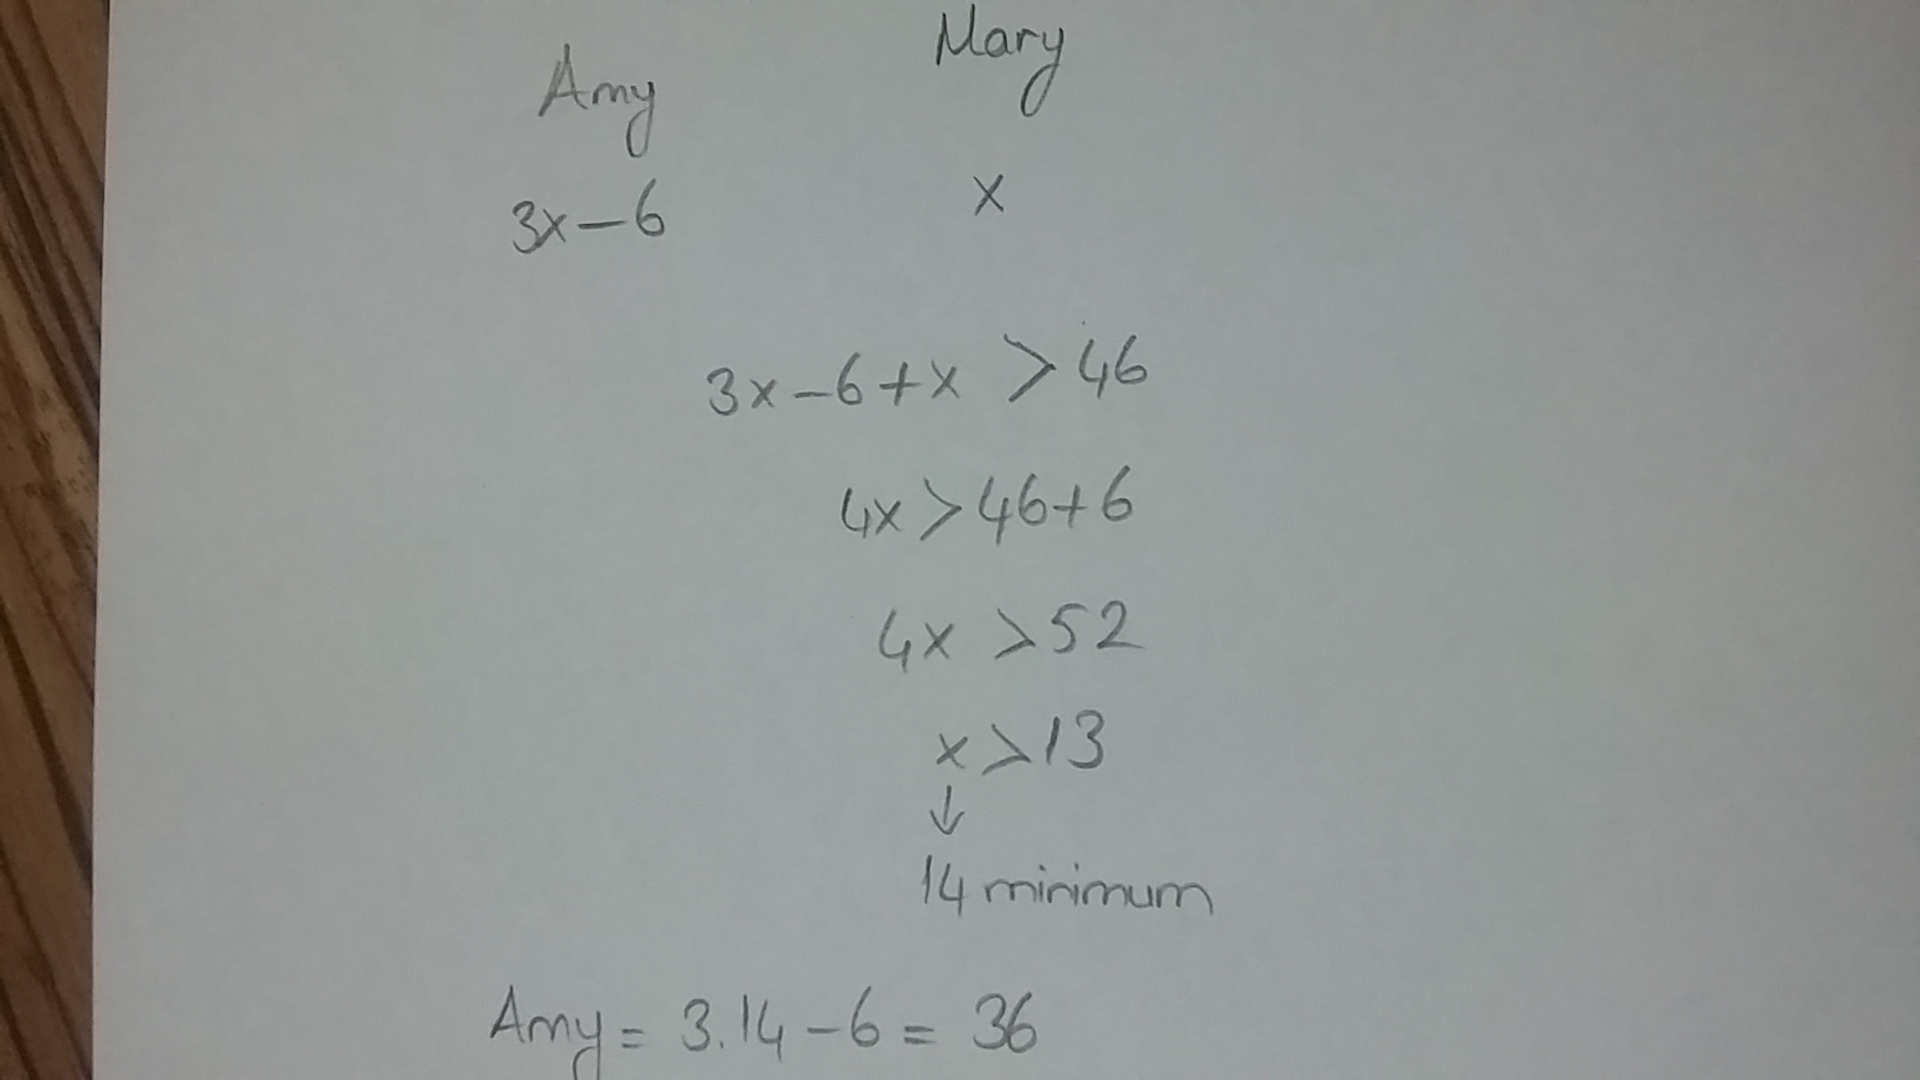 Amy Mary
3x-6 x
3x-6+x > 46
4x > 46+6
4x > 52
x > 13
↓
14 minimum
Amy = 3.14 - 6 = 36